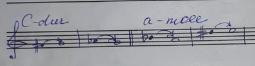 C-dur a-moll